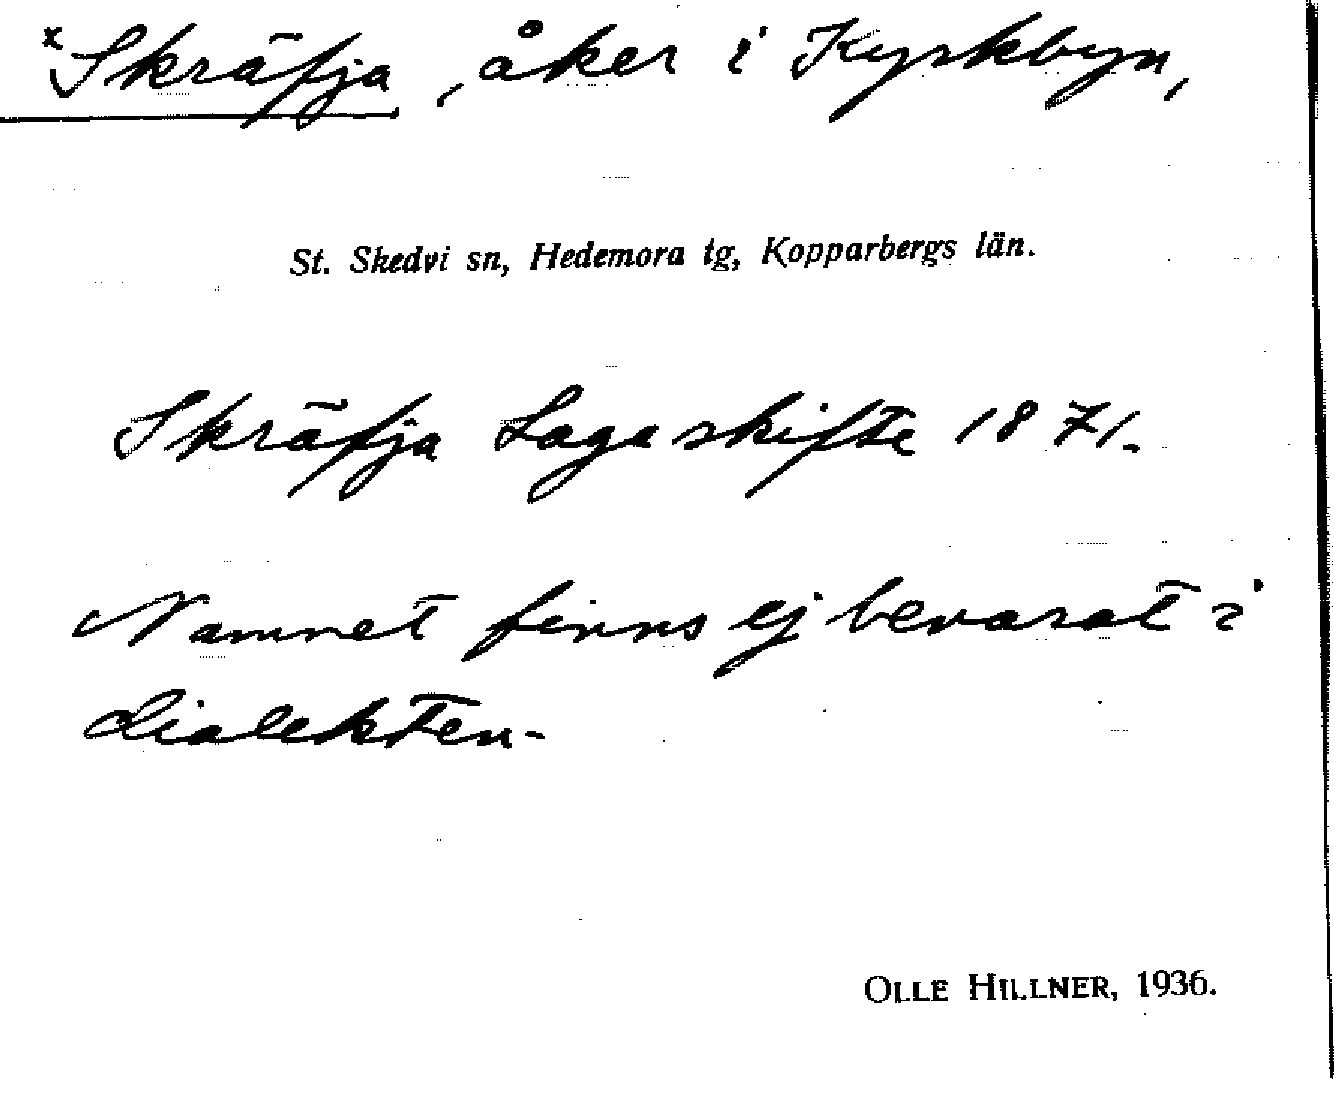 *Skräfja, åker i Kyrkbyn,
St. Skedvi sn, Hedemora tg, Kopparbergs län.
Skräfja Laga skifte 1871.
Namnet finns ej bevarat i
dialekten.
OLLE HILLNER, 1936.